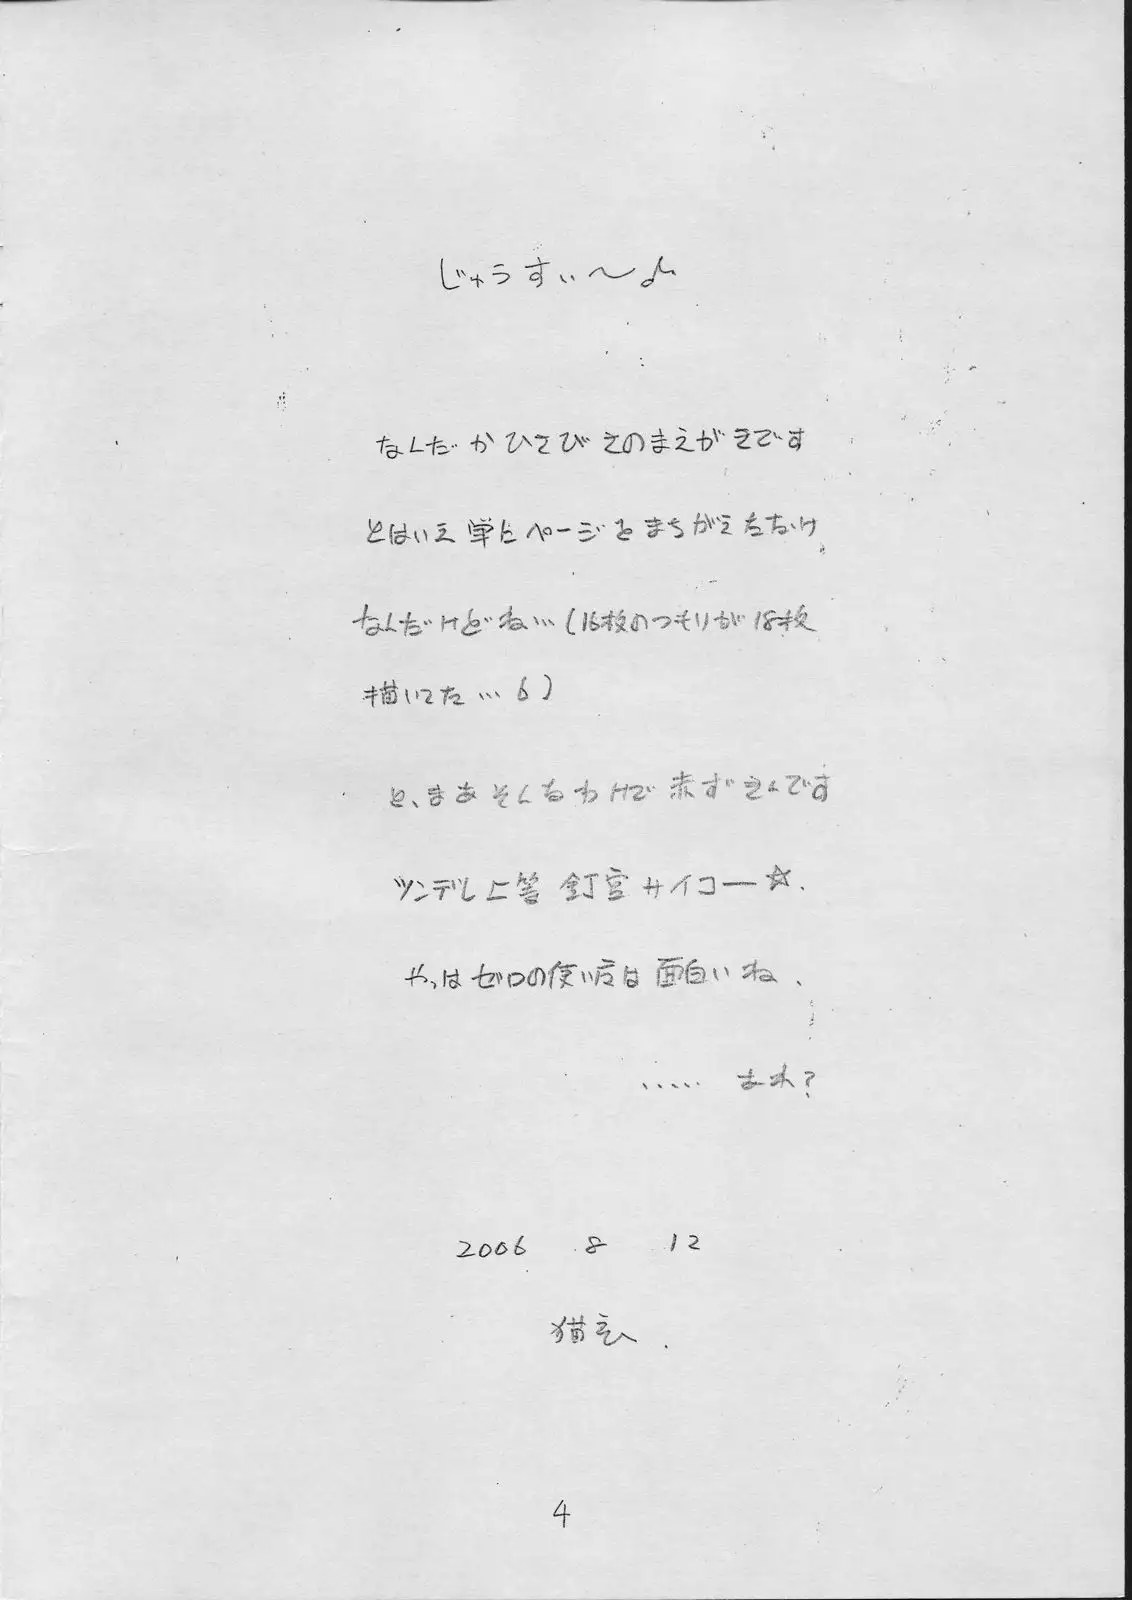 じゅうすぃ〜♪
なんだかひさびさのまえがきです
とはいえ単にページをまちがえただけ
なんだけどね…(16枚のつもりが18枚
描いてた…6)
と、まあそんなわけで赤ずきんです
ツンデレ上等 釘宮サイコー☆.
やっぱゼロの使い魔は面白いね、
..... あれ?
2006 8 12
猫玄
4